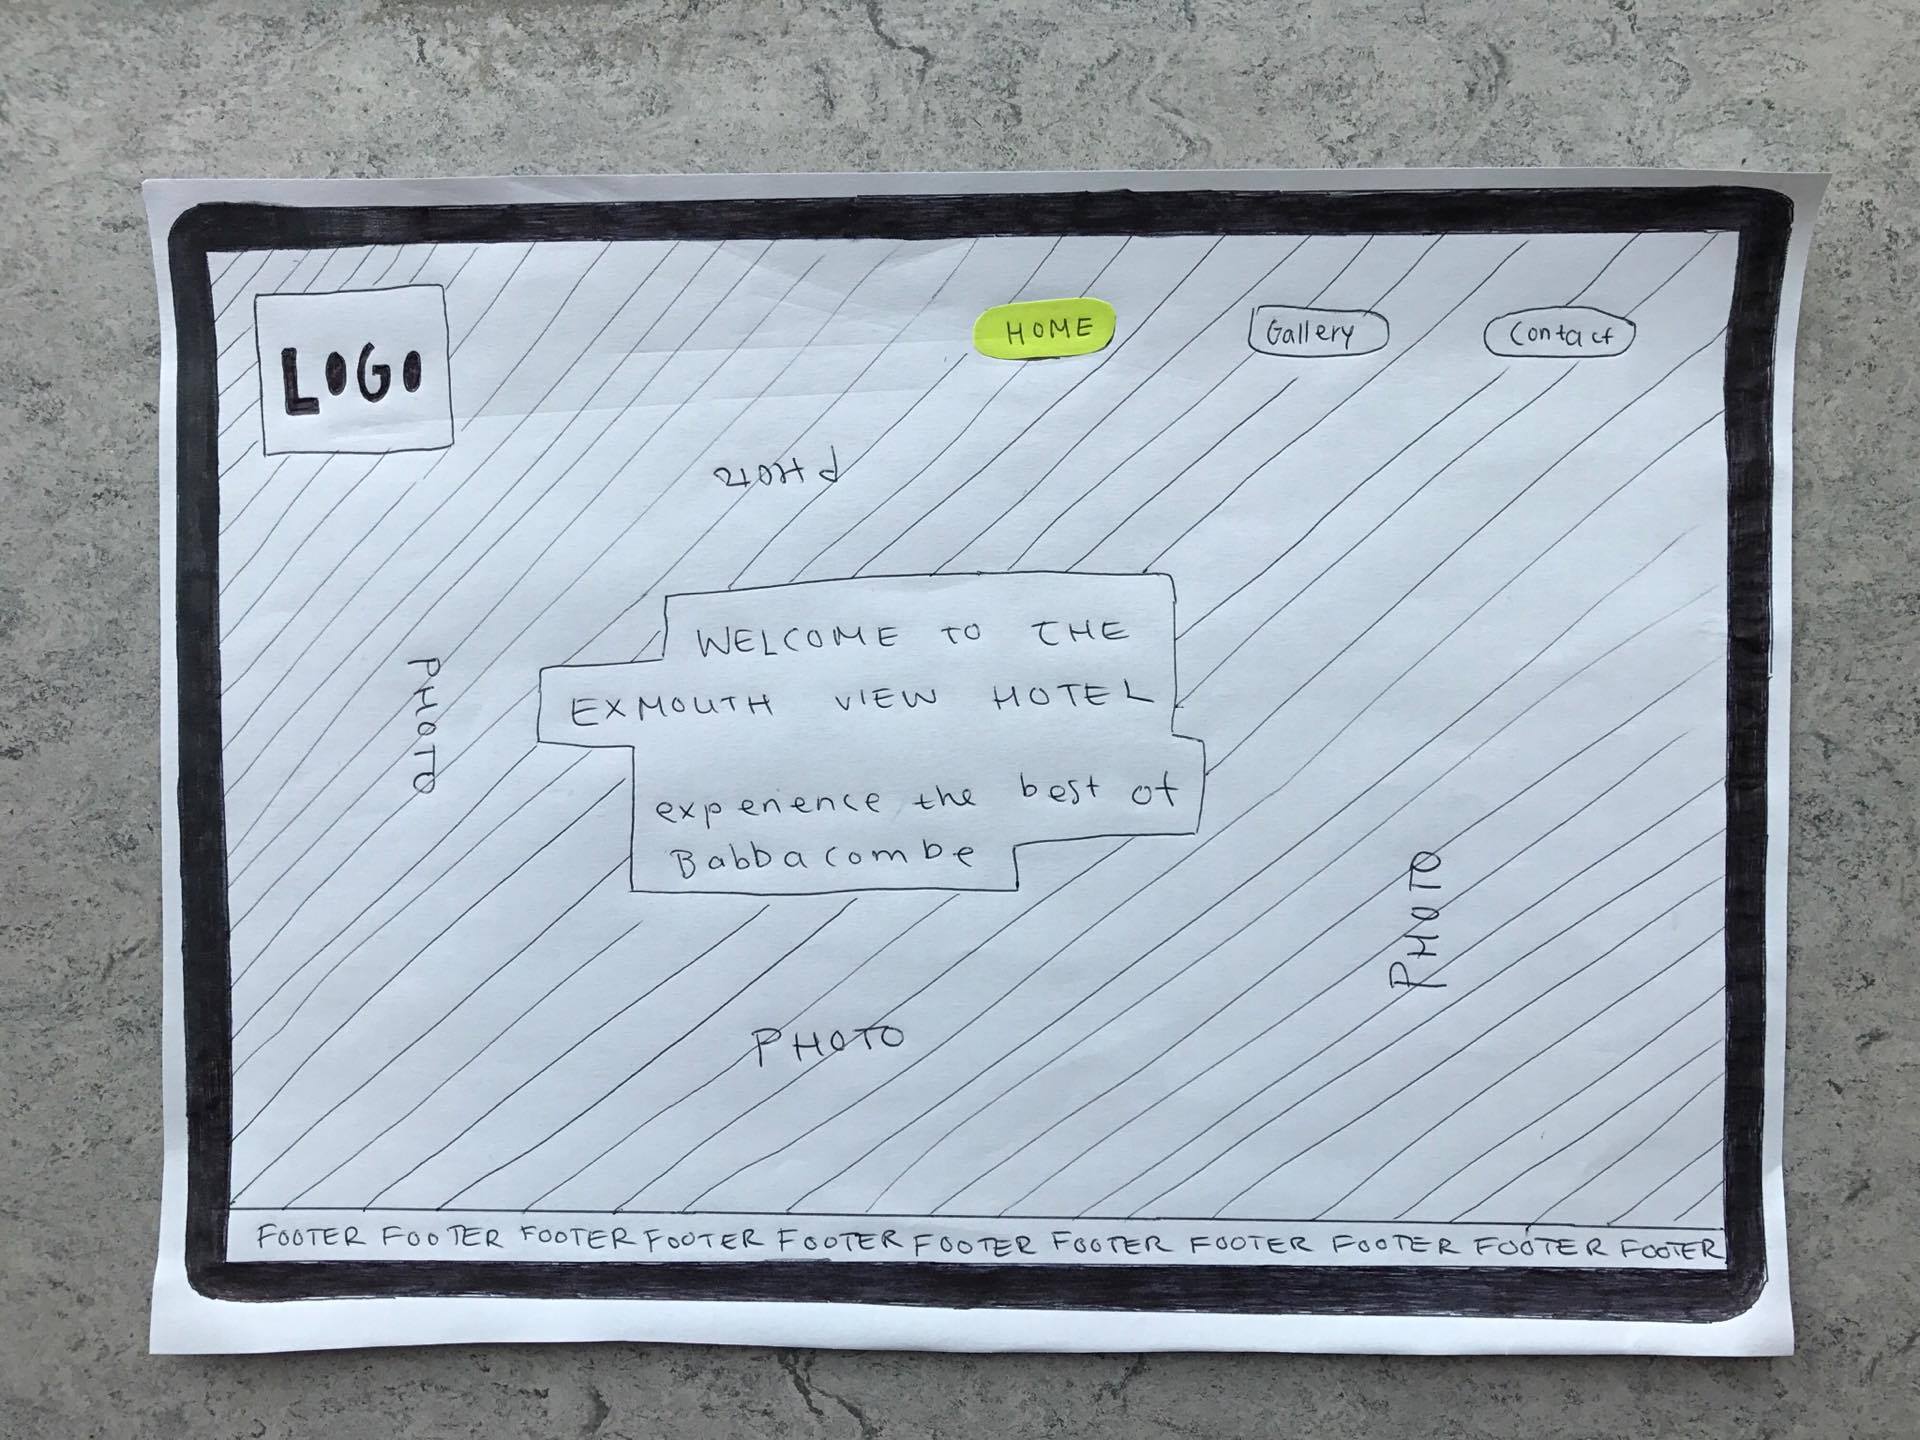 LOGO
HOME
Gallery
Contact
PHOTO
WELCOME TO THE
EXMOUTH VIEW HOTEL
PHOTO
experience the best of
Babbacombe
PHOTO
PHOTO
FOOTER FOOTER FOOTER FOOTER FOOTER FOOTER FOOTER FOOTER FOOTER FOOTER FOOTER